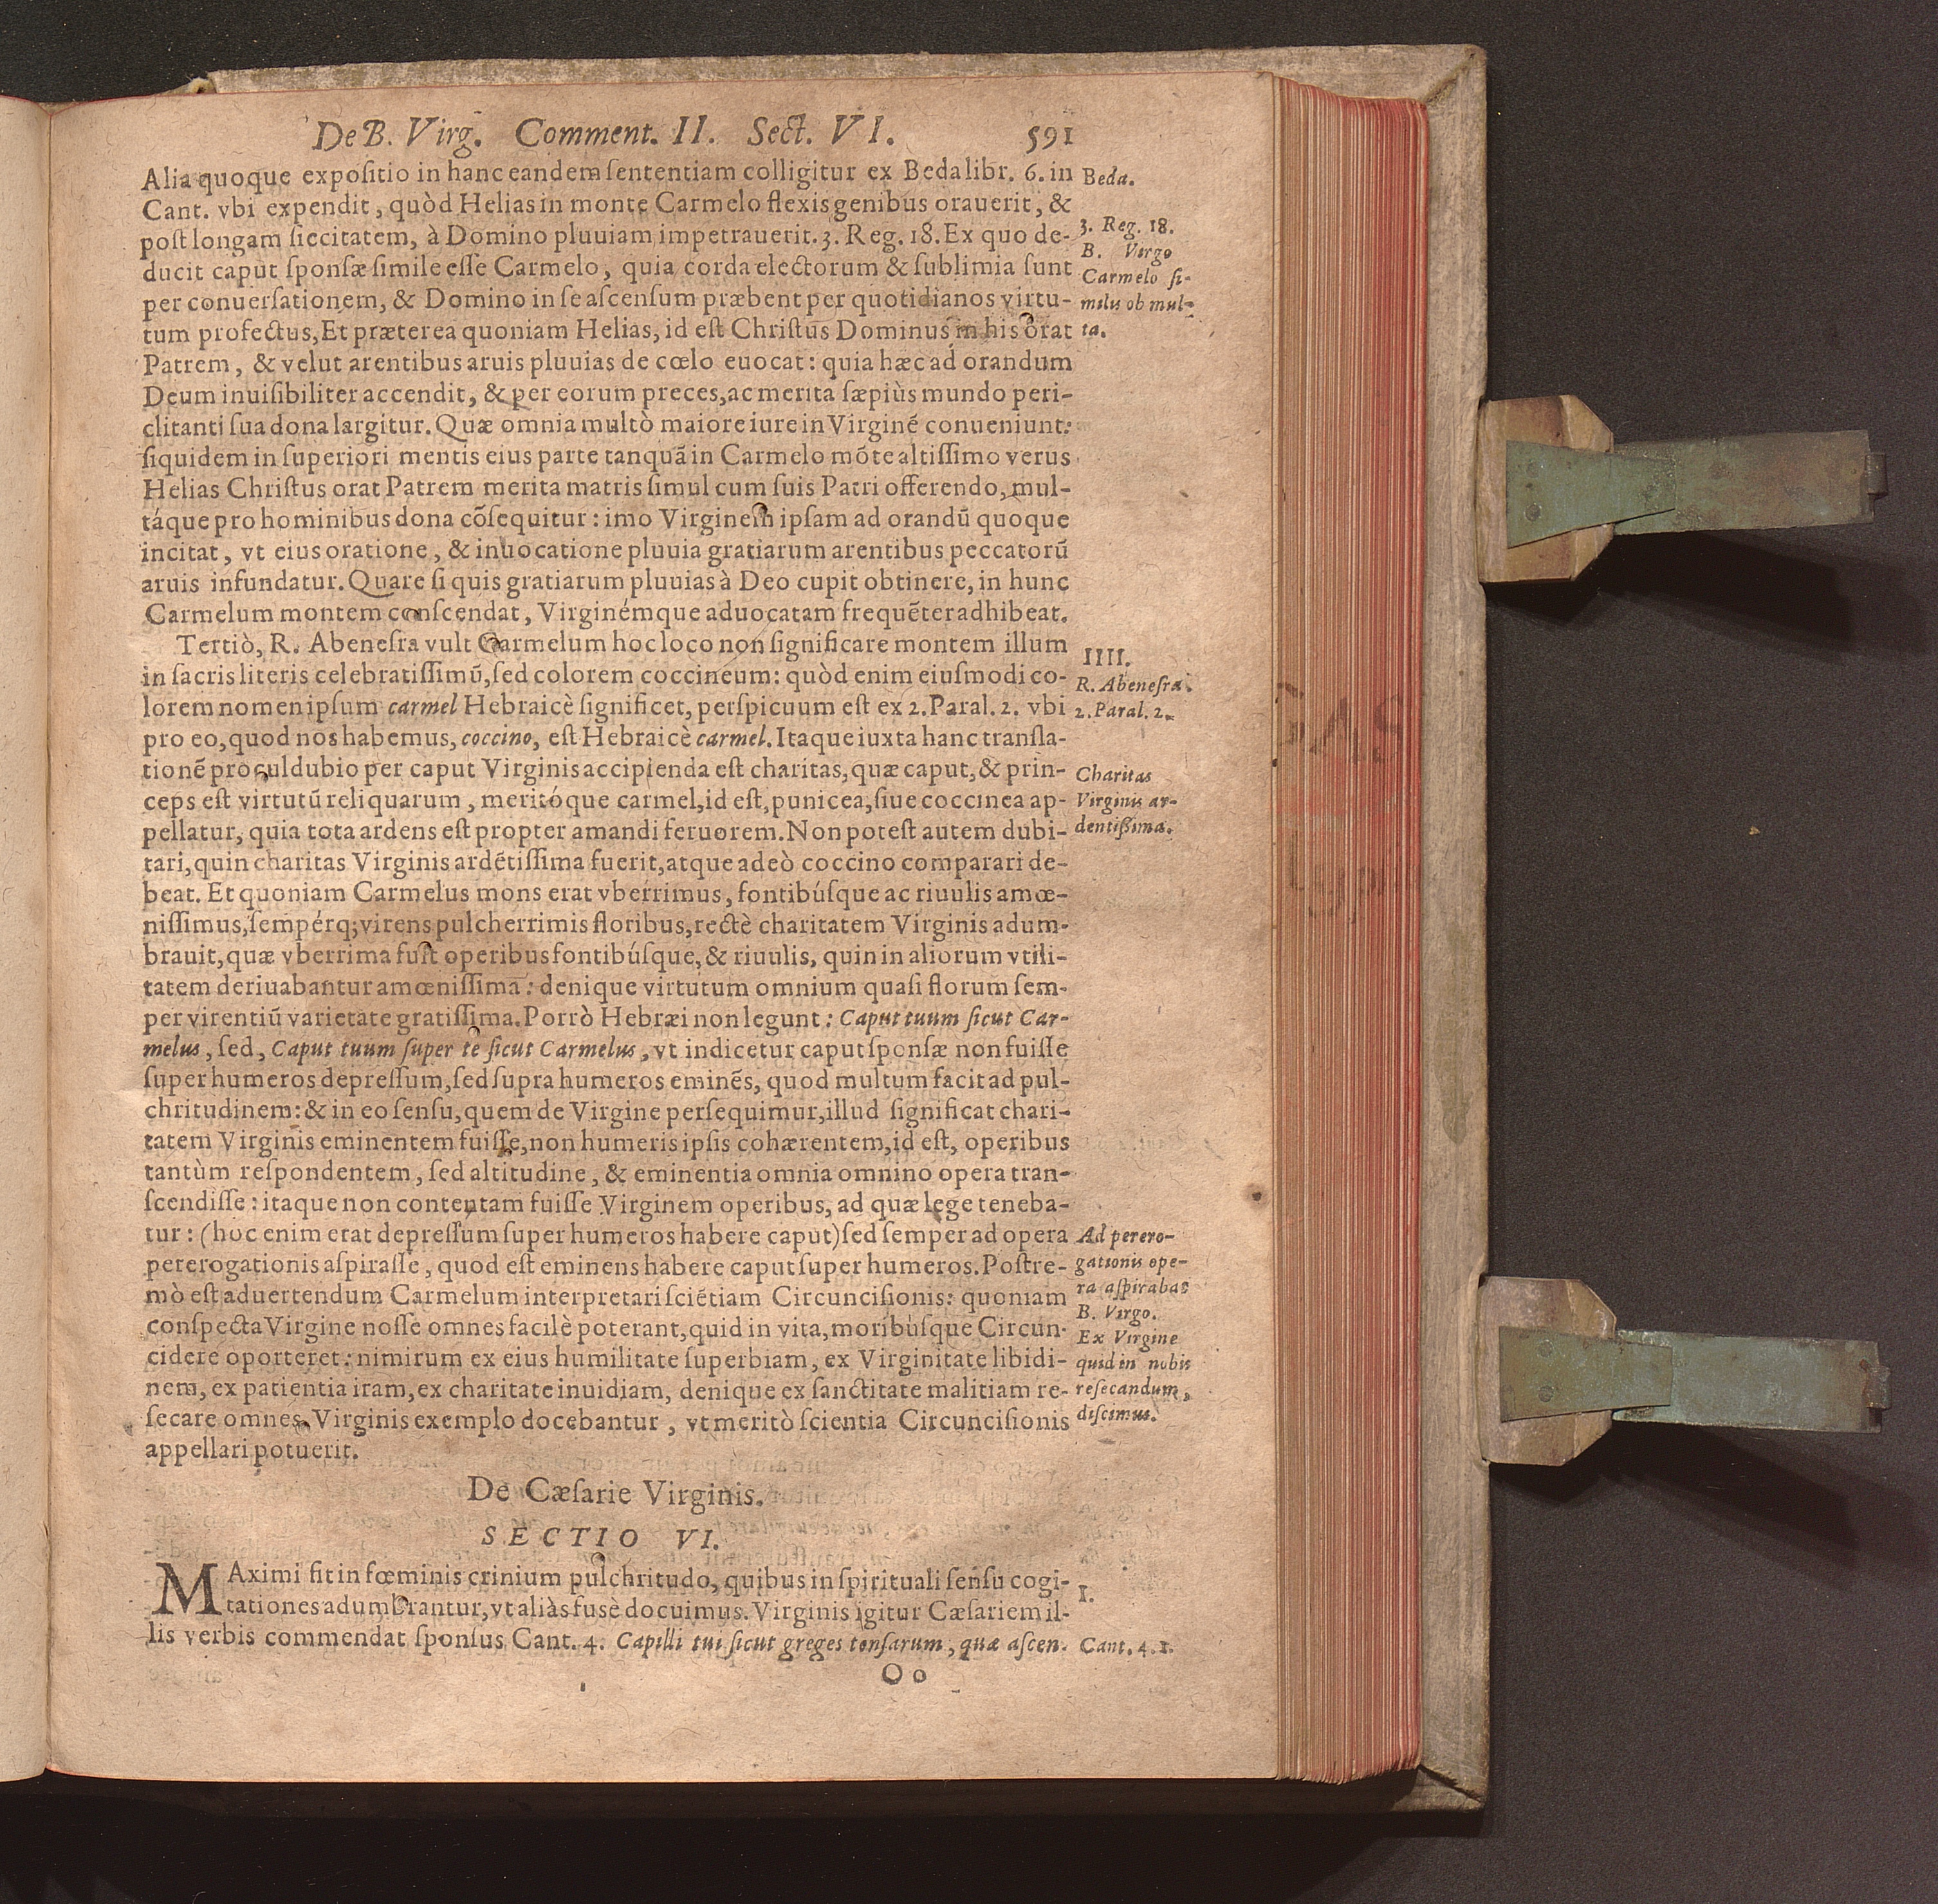 De B. Virg. Comment. II. Sect. VI. 591
Alia quoque expoſitio in hanc eandem ſententiam colligitur ex Beda libr. 6. in
Cant. vbi expendit, quòd Helias in monte Carmelo flexis genibus orauerit, &
poſt longam ſiccitatem, à Domino pluuiam impetrauerit. 3. Reg. 18. Ex quo de-
ducit caput ſponſæ ſimile eſſe Carmelo, quia corda electorum & ſublimia ſunt
per conuerſationem, & Domino in ſe aſcenſum præbent per quotidianos virtu-
tum profectus, Et præterea quoniam Helias, id eſt Chriſtus Dominus in his orat
Patrem, & velut arentibus aruis pluuias de cœlo euocat: quia hæc ad orandum
Deum inuiſibiliter accendit, & per eorum preces, ac merita ſæpiùs mundo peri-
clitanti ſua dona largitur. Quæ omnia multò maiore iure in Virginẽ conueniunt:
ſiquidem in ſuperiori mentis eius parte tanquã in Carmelo mõte altiſſimo verus
Helias Chriſtus orat Patrem merita matris ſimul cum ſuis Patri offerendo, mul-
táque pro hominibus dona cõſequitur: imo Virginem ipſam ad orandũ quoque
incitat, vt eius oratione, & inuocatione pluuia gratiarum arentibus peccatorũ
aruis infundatur. Quare ſi quis gratiarum pluuias à Deo cupit obtinere, in hunc
Carmelum montem conſcendat, Virginémque aduocatam frequẽter adhibeat.
Tertiò, R. Abeneſra vult Carmelum hoc loco non ſignificare montem illum
in ſacris literis celebratiſſimũ, ſed colorem coccineum: quòd enim eiuſmodi co-
lorem nomen ipſum carmel Hebraicè ſignificet, perſpicuum eſt ex 2. Paral. 2. vbi
pro eo, quod nos habemus, coccino, eſt Hebraicè carmel. Itaque iuxta hanc tranſla-
tionẽ proculdubio per caput Virginis accipienda eſt charitas, quæ caput, & prin-
ceps eſt virtutũ reliquarum, meritóque carmel, id eſt, punicea, ſiue coccinea ap-
pellatur, quia tota ardens eſt propter amandi feruorem. Non poteſt autem dubi-
tari, quin charitas Virginis ardẽtiſſima fuerit, atque adeò coccino comparari de-
beat. Et quoniam Carmelus mons erat vberrimus, fontibúſque ac riuulis amœ-
niſſimus, ſempérq; virens pulcherrimis floribus, rectè charitatem Virginis adum-
brauit, quæ vberrima fuit operibus fontibúſque, & riuulis, quin in aliorum vtili-
tatem deriuabantur amœniſſima: denique virtutum omnium quaſi florum ſem-
per virentiũ varietate gratiſſima. Porrò Hebræi non legunt: Caput tuum ſicut Car-
melus, ſed, Caput tuum ſuper te ſicut Carmelus, vt indicetur caput ſponſæ non fuiſſe
ſuper humeros depreſſum, ſed ſupra humeros eminẽs, quod multum facit ad pul-
chritudinem: & in eo ſenſu, quem de Virgine perſequimur, illud ſignificat chari-
tatem Virginis eminentem fuiſſe, non humeris ipſis cohærentem, id eſt, operibus
tantùm reſpondentem, ſed altitudine, & eminentia omnia omnino opera tran-
ſcendiſſe: itaque non contentam fuiſſe Virginem operibus, ad quæ lege teneba-
tur: (hoc enim erat depreſſum ſuper humeros habere caput) ſed ſemper ad opera
pererogationis aſpiraſſe, quod eſt eminens habere caput ſuper humeros. Poſtre-
mò eſt aduertendum Carmelum interpretari ſciẽtiam Circunciſionis: quoniam
conſpecta Virgine noſſe omnes facilè poterant, quid in vita, moribúſque Circun-
cidere oporteret: nimirum ex eius humilitate ſuperbiam, ex Virginitate libidi-
nem, ex patientia iram, ex charitate inuidiam, denique ex ſanctitate malitiam re-
ſecare omnes Virginis exemplo docebantur, vt meritò ſcientia Circunciſionis
appellari potuerit.
De Cæſarie Virginis.
SECTIO VI.
MAximi fit in fœminis crinium pulchritudo, quibus in ſpirituali ſenſu cogi-
tationes adumbrantur, vt aliàs fusè docuimus. Virginis igitur Cæſariem il-
lis verbis commendat ſponſus Cant. 4. Capilli tui ſicut greges tonſarum, quæ aſcen-
Oo
Beda.
3. Reg. 18.
B. Virgo
Carmelo ſi-
milis ob mul-
ta.
IIII.
R. Abeneſra.
2. Paral. 2.
Charitas
Virginis ar-
dentißima.
Ad perero-
gationis ope-
ra aſpirabat
B. Virgo.
Ex Virgine
quid in nobis
reſecandum,
diſcimus.
I.
Cant. 4. 1.